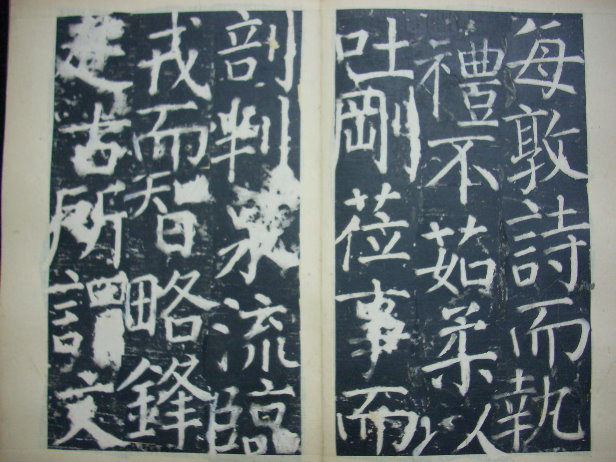 每敦詩而執
禮不茹柔以
吐剛莅事而
剖判泉流臨
戎而智略鋒
楚古所謂文